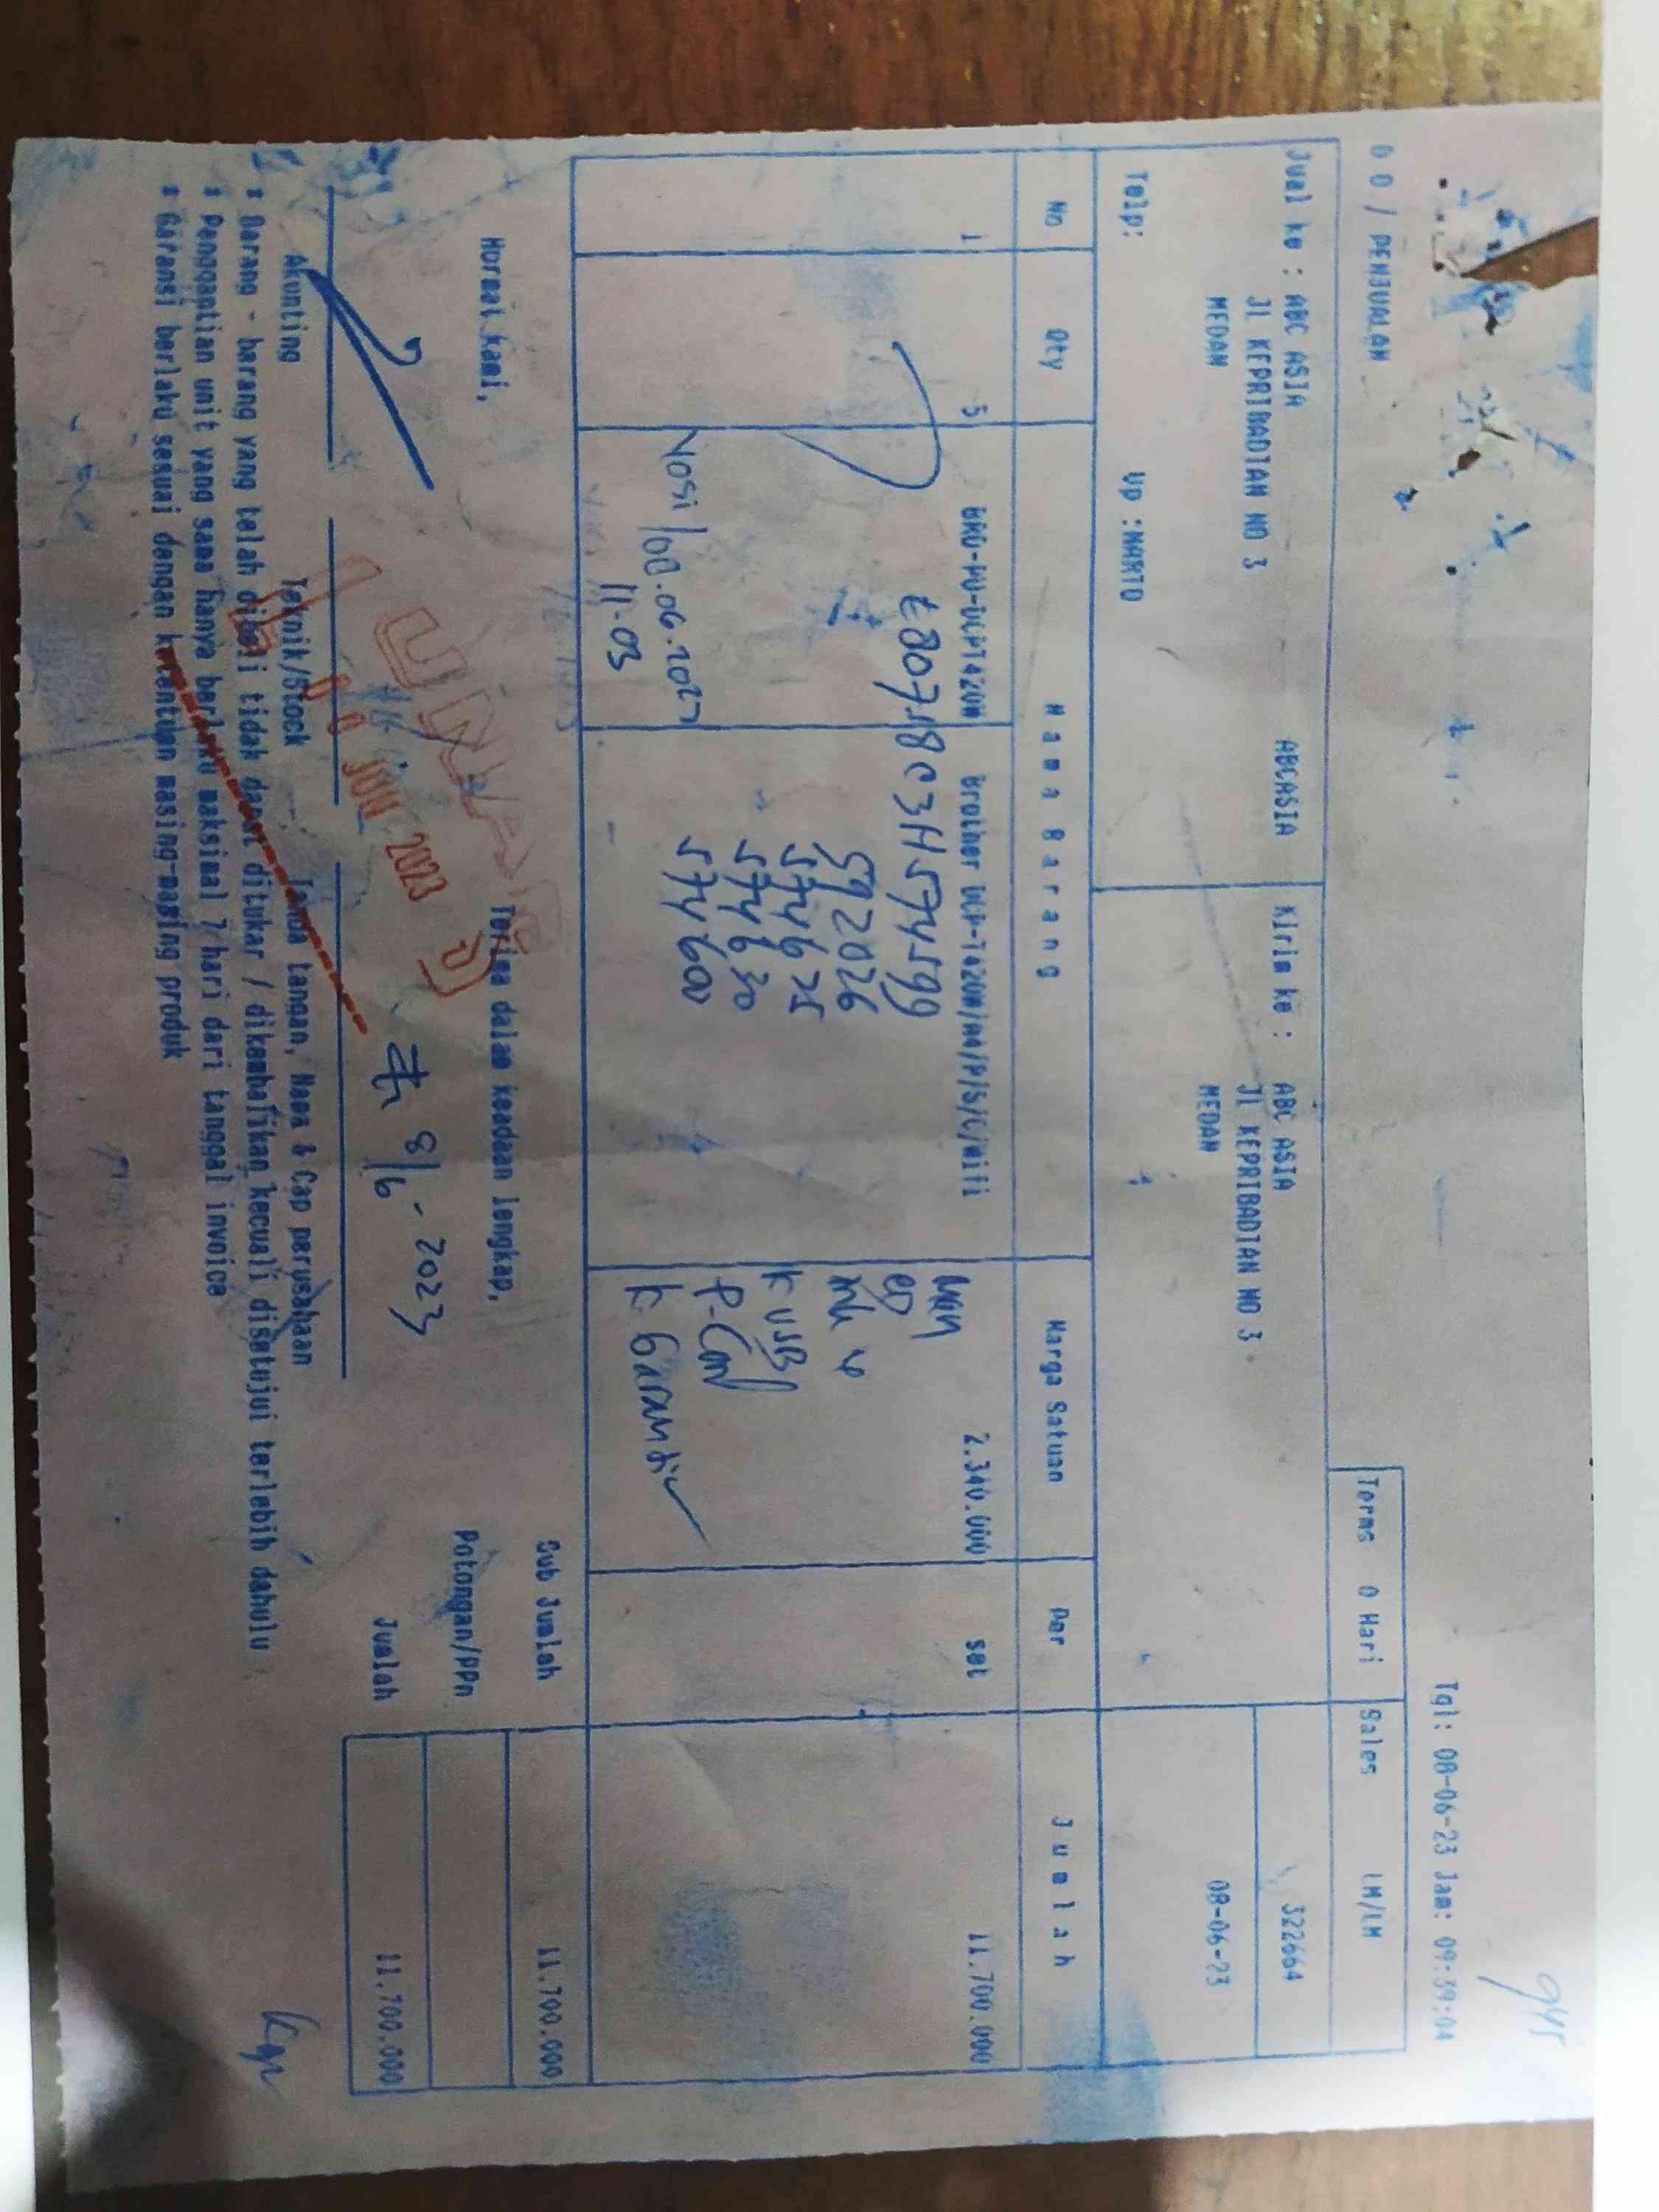 Tgl: 08-06-23 Jam: 09:39:04
0 0 / PENJUALAN
Terms 0 Hari Sales LM/LM
Jual ke : ABC ASIA ABCASIA Kirim ke : ABC ASIA 322664
JL KEPRIBADIAN NO 3 JL KEPRIBADIAN NO 3
MEDAN MEDAN 08-06-23
Telp: Up :HARTO
No Qty Nama Barang Harga Satuan Per Jumlah
1 5 BRO-PO-DCPT420W Brother DCP-T420W/A4/P/S/C/Wifi 2.340.000 set 11.700.000
E80718C3H574599
592026
574625
574630
574600
K USB
K Garansi
11.03
Hormat kami, Terima dalam keadaan lengkap, Sub Jumlah 11.700.000
Potongan/PPn
Jumlah 11.700.000
LUNAS
JUN 2023
8/6-2023
Akunting Teknik/Stock Tanda tangan, Nama & Cap perusahaan
* Barang - barang yang telah dibeli tidak dapat ditukar / dikembalikan kecuali disetujui terlebih dahulu
* Penggantian unit yang sama hanya berlaku maksimal 7 hari dari tanggal invoice
* Garansi berlaku sesuai dengan ketentuan masing-masing produk